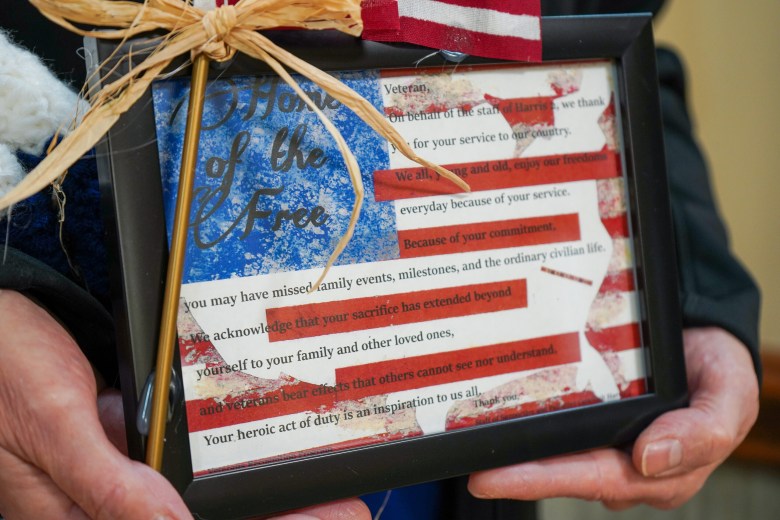 Home
of the
Free
Veteran,
On behalf of the staff of Harris, we thank
for your service to our country.
We all, and old, enjoy our freedoms
everyday because of your service.
Because of your commitment,
you may have missed family events, milestones, and the ordinary civilian life.
We acknowledge that your sacrifice has extended beyond
yourself to your family and other loved ones,
and veterans bear effects that others cannot see nor understand.
Your heroic act of duty is an inspiration to us all.
Thank you.